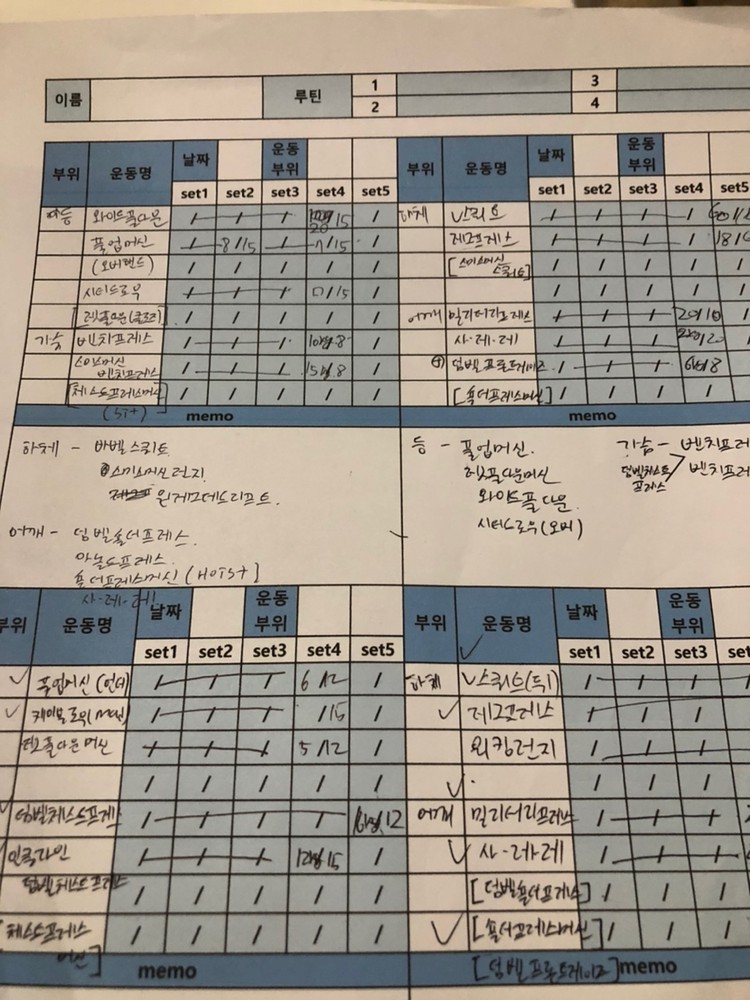 이름 루틴 1 3
2 4
부위 운동명 날짜 운동부위
set1 set2 set3 set4 set5
등 와이드풀다운 / / / /15 /
풀업머신 / 8/15 / 7/15 /
(오버핸드) / / / / /
시티드로우 / / / /15 /
/ / / / /
가슴 벤치프레스 / / / 8 /
스미스머신 벤치프레스 / / / 8 /
[체스트프레스머신] / / / / /
memo
부위 운동명 날짜 운동부위
set1 set2 set3 set4 set5
하체 스쿼트 / / / /
레그프레스 / / / /
[스미스머신 스쿼트] / / / / /
/ / / / /
어깨 밀리터리프레스 / / / /
사·레·레 / / / /
덤벨프론트레이즈 / / / 8 /
[숄더프레스머신] / / / / /
memo
하체 - 바벨스쿼트
스미스머신런지
원레그데드리프트.
어깨 - 덤벨숄더프레스.
아놀드프레스.
숄더프레스머신 (HOIST]
사·레·레
등 - 풀업머신.
렛풀다운머신
와이드풀다운.
시티드로우(오버)
가슴 - 벤치프레
덤벨체스트프레스
벤치프레
부위 운동명 날짜 운동부위
set1 set2 set3 set4 set5
풀업머신 (언더) / / / 6/12 /
케이블로우(머신) / / / /15 /
렛풀다운머신 / / / 5/12 /
/ / / / /
덤벨체스트프레스 / / / / 12
인클라인 덤벨체스트프레스 / / / 15 /
/ / / / /
[체스트프레스머신] / / / / /
memo
부위 운동명 날짜 운동부위
set1 set2 set3 set4
하체 스쿼트 / / / /
레그프레스 / / / /
워킹런지 / / / /
/ / / /
어깨 밀리터리프레스 / / / /
사·레·레 / / / /
[덤벨숄더프레스] / / / /
[숄더프레스머신] / / / /
[덤벨프론트레이즈] memo